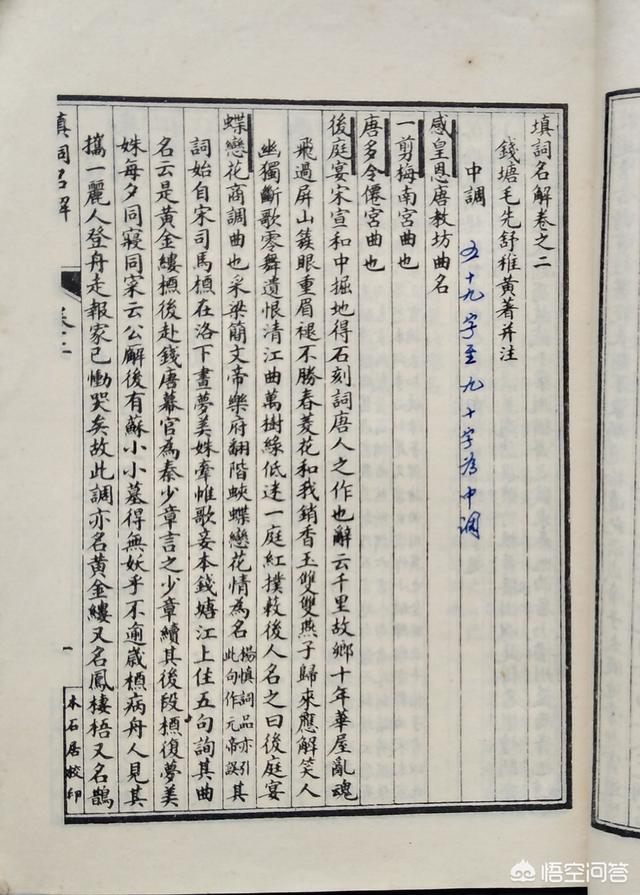 填詞名解卷之二
錢塘毛先舒稚黃著并注
中調 五十九字至九十字为中调
感皇恩唐教坊曲名
一剪梅南宮曲也
唐多令僊宮曲也
後庭宴宋宣和中掘地得石刻詞唐人之作也解云千里故鄉十年華屋亂魂
飛過屏山簇眼重眉褪不勝春菱花和我銷香玉雙雙燕子歸來應解笑人
幽獨斷歌零舞遺恨清江曲萬樹綠低迷一庭紅撲簌後人名之曰後庭宴
蝶戀花商調曲也采梁簡文帝樂府翻階蛺蝶戀花情為名楊慎詞品亦引此句作元帝誤其
詞始自宋司馬槱在洛下晝夢美姝牽帷歌妾本錢塘江上住五句詢其曲
名云是黃金縷槱後赴錢唐幕官為秦少章言之少章續其後段槱復夢美
姝每夕同寢同寀云公廨後有蘇小小墓得無妖乎不逾歲槱病舟人見其
攜一麗人登舟走報家已慟哭矣故此調亦名黃金縷又名鳳棲梧又名鵲
填詞名解
卷二
一
本石居校印
悟空问答